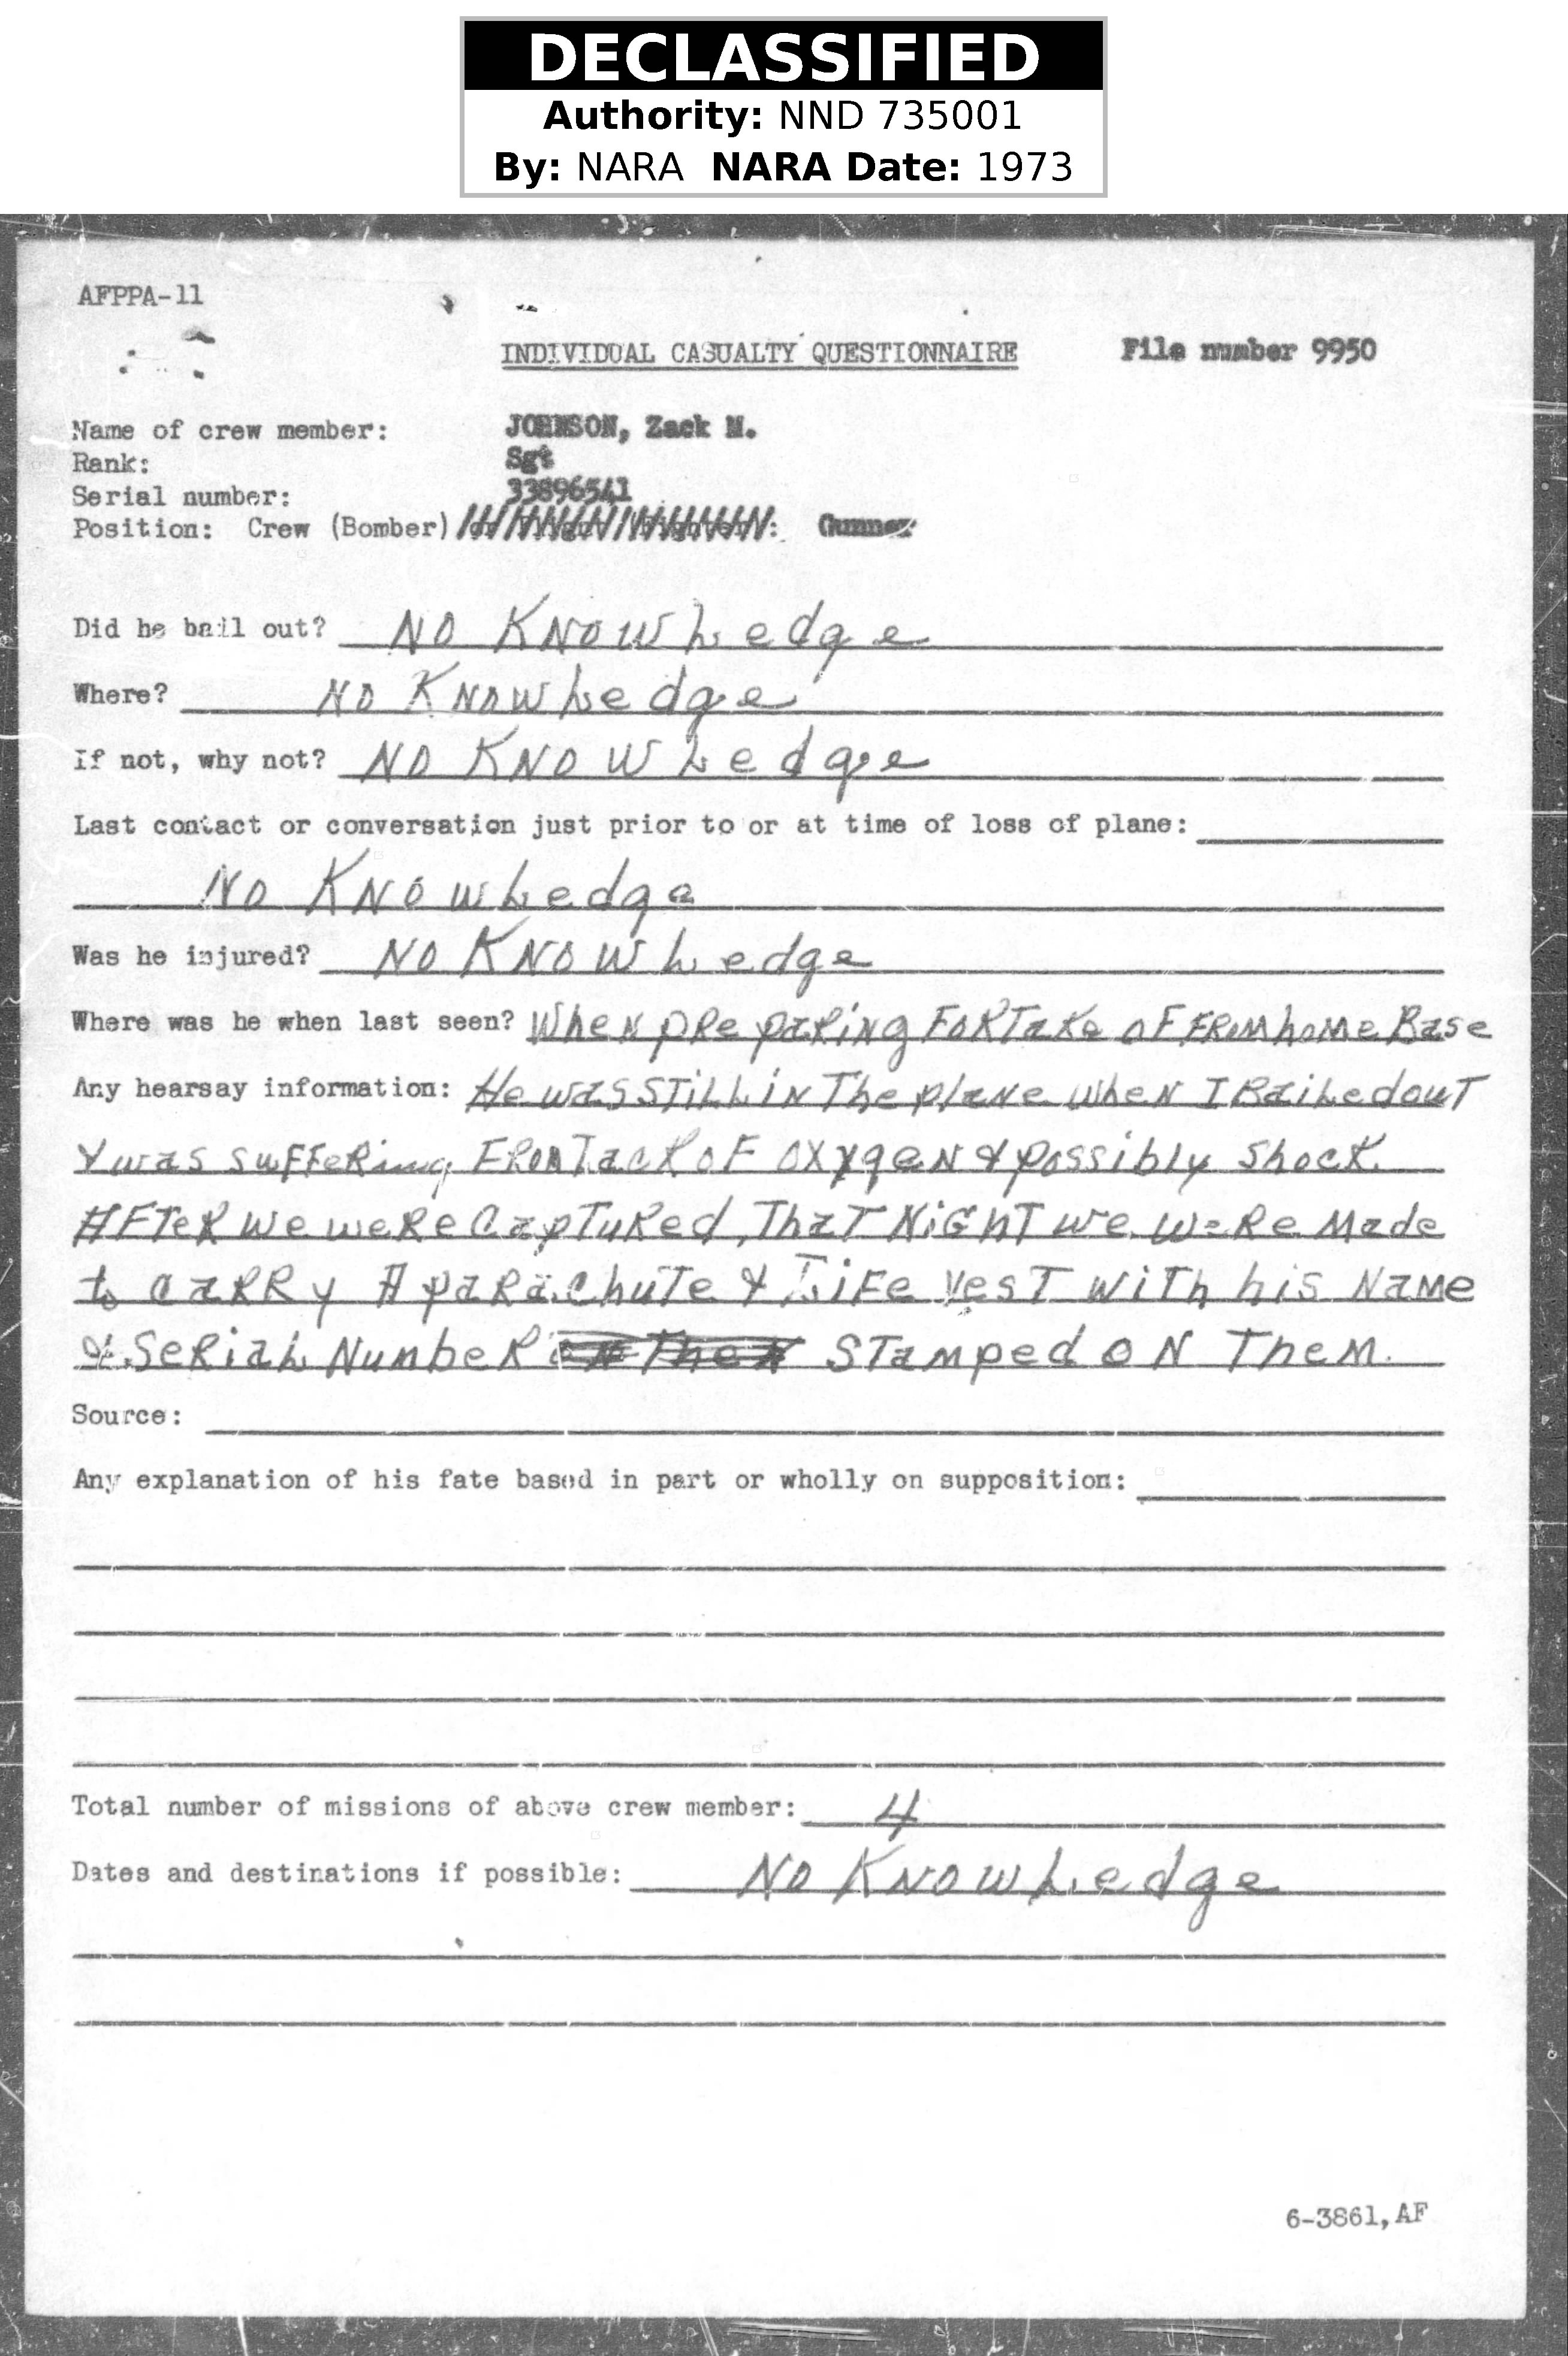 DECLASSIFIED
Authority: NND 735001
By: NARA NARA Date: 1973
AFPPA-11
INDIVIDUAL CASUALTY QUESTIONNAIRE File number 9950
Name of crew member: JOHNSON, Zack M.
Rank: Sgt
Serial number: 33896541
Position: Crew (Bomber) Gunner
Did he bail out? NO KNOWLedge
Where? NO KNOWLedge
If not, why not? NO KNOWLedge
Last contact or conversation just prior to or at time of loss of plane:
NO KNOWLedge
Was he injured? NO KNOWLedge
Where was he when last seen? When pRepaRiNg FoR Take oFF FRom home Base
Any hearsay information: He was STiLL iN The plaNe when I BaiLed ouT
& was suFFeRing FRom Lack oF oxygeN & possibly shock.
AFTeR we weRe CapTuRed, ThaT NiGhT we weRe Made
to caRRy A paRachuTe & LiFe VesT wiTh his Name
& SeRiaL NumbeR STamped oN Them.
Source:
Any explanation of his fate based in part or wholly on supposition:
Total number of missions of above crew member: 4
Dates and destinations if possible: NO KNOWLedge
6-3861,AF